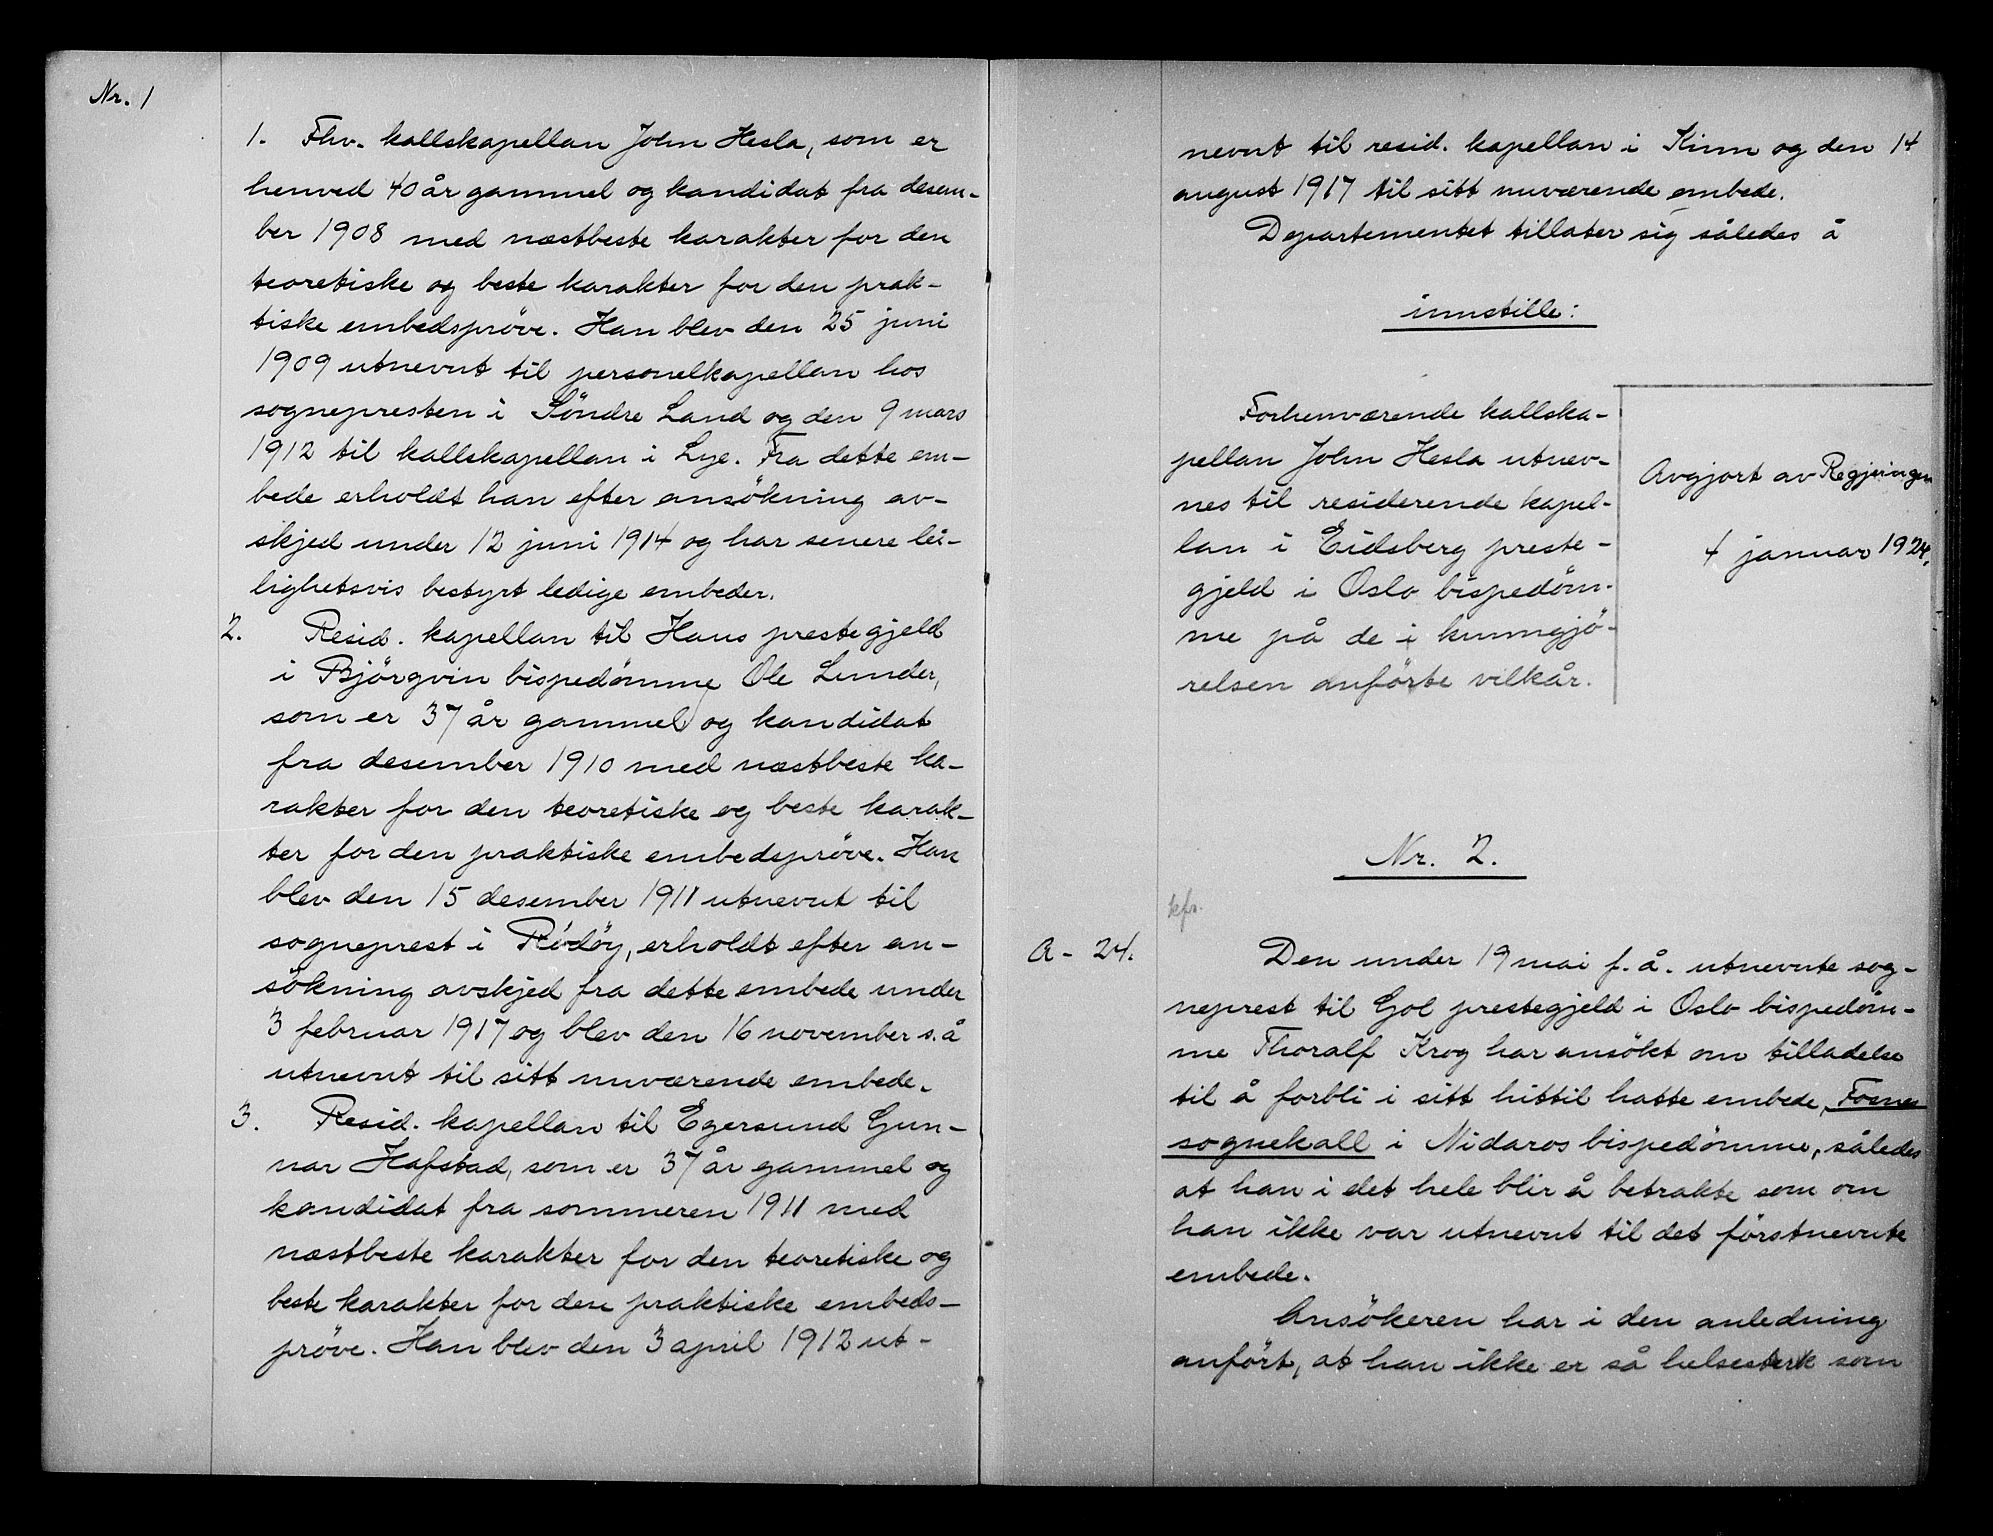 Nr. 1
1. Fhv. kallskapellan John Hesla, som er
henved 40 år gammel og kandidat fra desem-
ber 1908 med næstbeste karakter for den
teoretiske og beste karakter for den prak-
tiske embedspröve. Han blev den 25 juni
1909 utnevnt til personelkapellan hos
sognepresten i Söndre Land og den 9 mars
1912 til kallskapellan i Lye. Fra dette em-
bede erholdt han efter ansökning av-
skjed under 12 juni 1914 og har senere lei-
lighetsvis bestyrt ledige embeder.
2. Resid. kapellan til Haus prestegjeld
i Björgvin bispedömme Ole Lunder,
som er 37 år gammel og kandidat
fra desember 1910 med næstbeste ka-
rakter for den teoretiske og beste karak-
ter for den praktiske embedspröve. Han
blev den 15 desember 1911 utnevnt til
sogneprest i Rödöy, erholdt efter an-
sökning avskjed fra dette embede under
3 februar 1917 og blev den 16 november s.å
utnevnt til sitt nuværende embede.
3. Resid. kapellan til Egersund Gun-
nar Hafstad, som er 37 år gammel og
kandidat fra sommeren 1911 med
næstbeste karakter for den teoretiske og
beste karakter for den praktiske embeds-
pröve. Han blev den 3 april 1912 ut-
nevnt til resid. kapellan i Kinn og den 14
august 1917 til sitt nuværende embede.
Departementet tillater sig således å
innstille:
Forhenværende kallska-
pellan John Hesla utnev-
nes til residerende kapel-
lan i Eidsberg preste-
gjeld i Oslo bispedöm-
me på de i kunngjö-
relsen anförte vilkår.
Avgjort av Regjeringen
4 januar 1924.
Nr. 2.
kfr.
A - 24.
Den under 19 mai f.å. utnevnte sog-
neprest til Gol prestegjeld i Oslo bispedöm-
me Thoralf Krog har ansökt om tilladelse
til å forbli i sitt hittil hatte embede, Fosnes
sognekall i Nidaros bispedömme, således
at han i det hele blir å betrakte som om
han ikke var utnevnt til det förstnevnte
embede.
Ansökeren har i den anledning
anfört, at han ikke er så helsesterk som